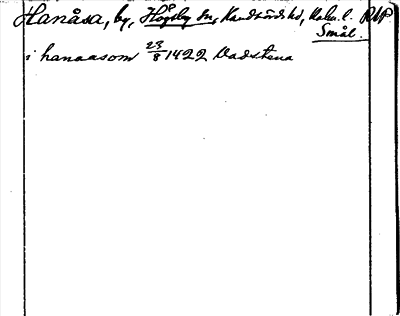 Hanåsa, by, Högsby sn, Handbörds hd, Kalm. l. RAP.
Smål.
i hanaasom 23/8 1422 Vadstena